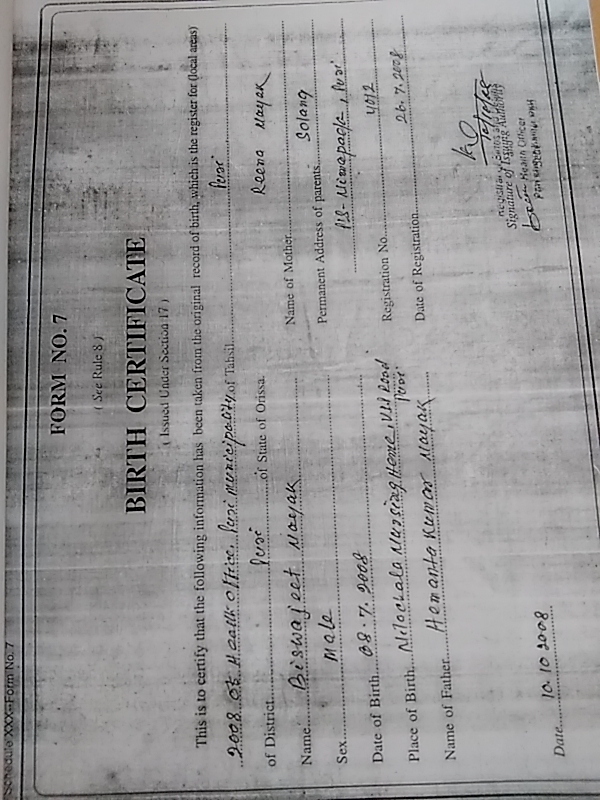 Schedule XXX-Form No. 7
FORM NO. 7
( See Rule 8 )
BIRTH CERTIFICATE
( Issued Under Section 17 )
This is to certify that the following information has been taken from the original record of birth, which is the register for (local areas)
2008 of Health Office, Puri municipality of Tahsil Puri
of District Puri of State of Orissa.
Name Biswajeet Nayak
Name of Mother Reena Nayak
Sex Male
Permanent Address of parents Solang
P.S- Nimapada, Puri
Date of Birth 08.7.2008
Registration No. 4012
Place of Birth Nilachala Nursing Home, VIP Road Puri
Date of Registration 26.7.2008
Name of Father Hemanta Kumar Nayak
Signature of Issuing Authority
Health Officer
Date 10.10 2008